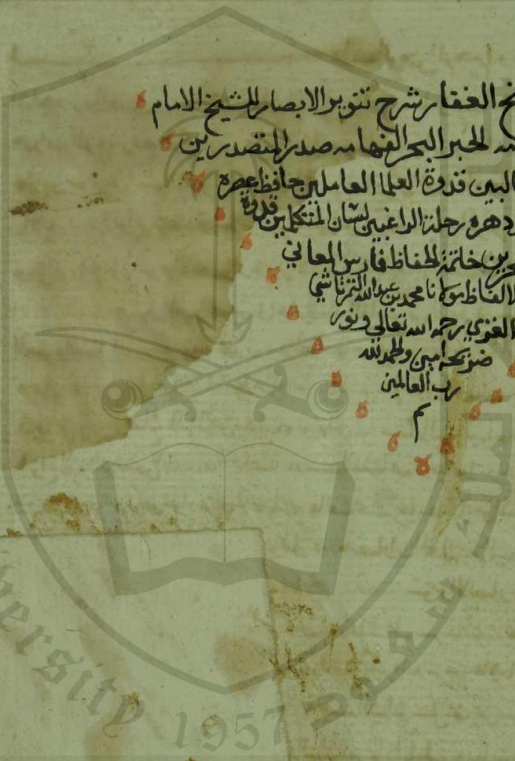 ح الغفار شرح تنوير الابصار للشيخ الامام
مه الحبر البحر الفهامه صدر المتصدرين
البين قدوة العلما العاملين حافظ عصره
دهره رحلة الراغبين لسان المتكلمين قدوة
خاتمة الحفاظ فارس المعاني
الالفاظ مولانا محمد بن عبدالله التمرتاشي
الغزي رحمه الله تعالى ونور
ضريحه امين والحمد لله
رب العالمين
م
جامعة الملك سعود
versity 1957